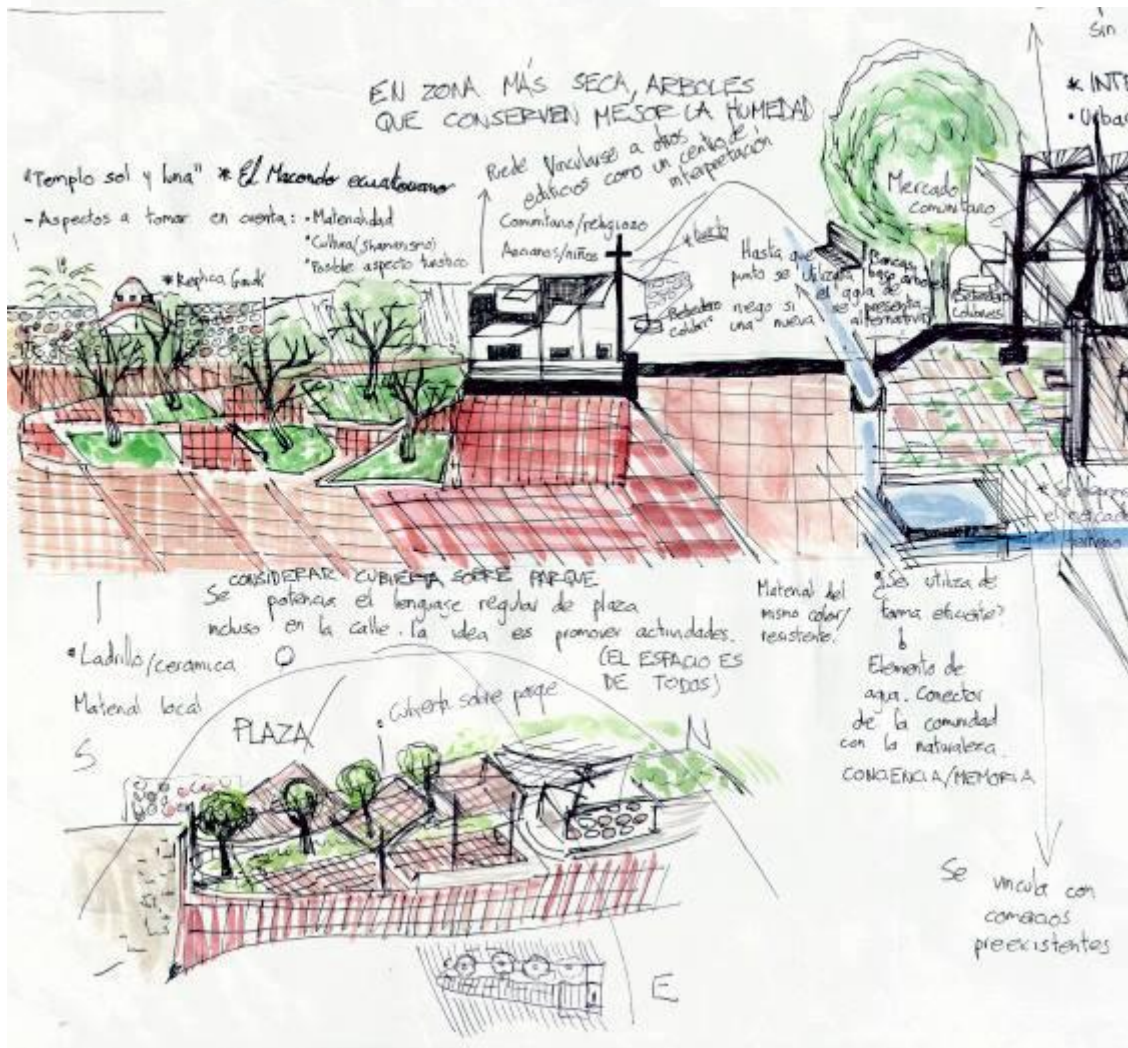 Sin
EN ZONA MÁS SECA, ARBOLES
QUE CONSERVEN MEJOR LA HUMEDAD
* INTE
• Urba
"Templo sol y luna" * El Macondo ecuatoriano
- Aspectos a tomar en cuenta: • Materialidad
* Cultura (shamanismo)
* Posible aspecto turístico
* Replica Gaudí
Puede Vincularse a otros
edificios como un centro de
interpretación
Comunitario/religioso
Ancianos/niños
Bebedero
colibrí
Hasta que
punto se utilizaría
el agua de
riego si se presenta
una nueva alternativa
Mercado
comunitario
base arbol
colibries
CONSIDERAR CUBIERTA SOBRE PARQUE
Se potencia el lenguaje regular de plaza
incluso en la calle. la idea es promover actividades.
(EL ESPACIO ES
DE TODOS)
Material del
mismo color/
resistente.
¿Se utiliza de
forma eficiente?
Elemento de
agua. Conector
de la comunidad
con la naturaleza.
CONCIENCIA/MEMORIA
* Ladrillo/ceramica
Material local
O
S
PLAZA
• Cubierta sobre parque
N
E
Se vincula con
comercios
preexistentes